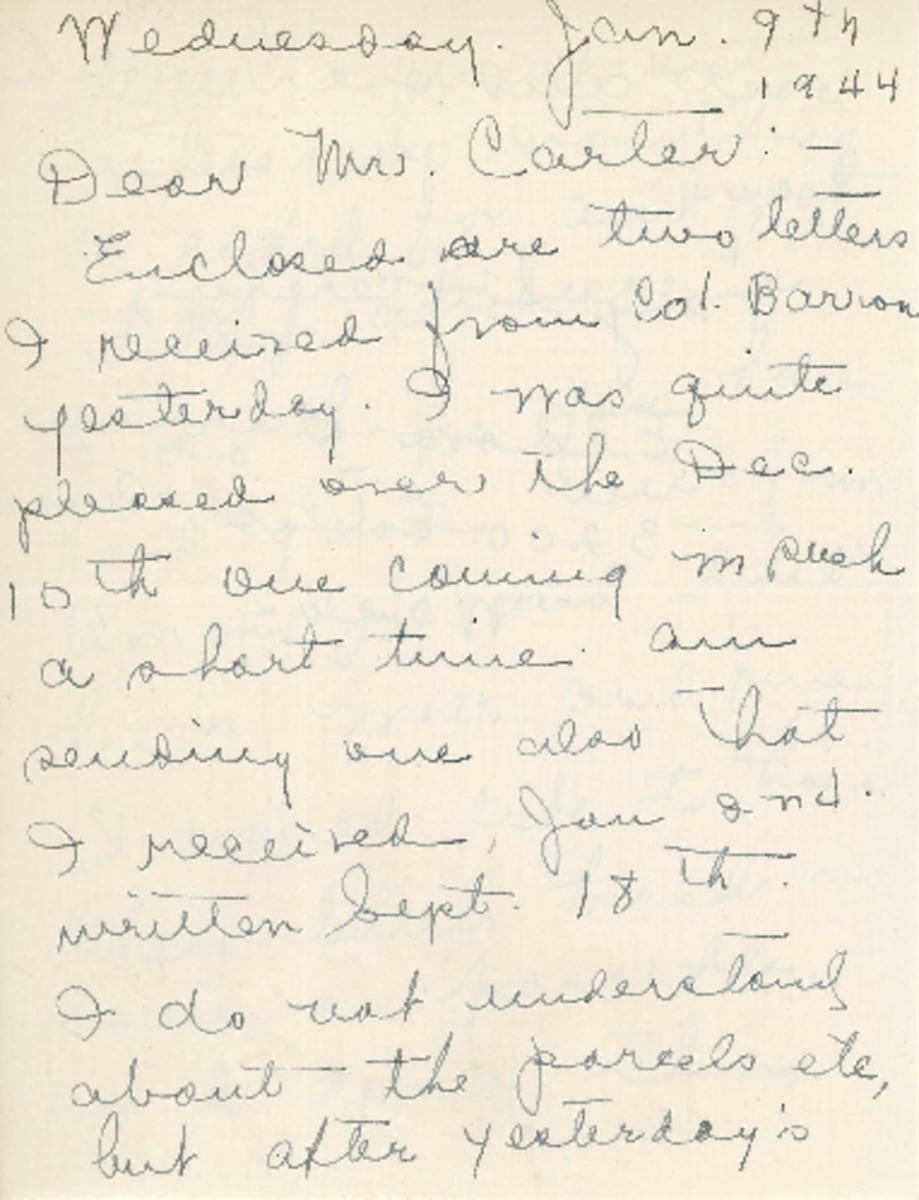 Wednesday. Jan. 9th
1944
Dear Mr. Carter: -
Enclosed are two letters
I received from Col. Barron
yesterday. I was quite
pleased over the Dec.
10th one coming in such
a short time. am
sending one also that
I received, Jan 2nd.
written Sept. 18th.
I do not understand
about the parcels etc,
but after yesterday's